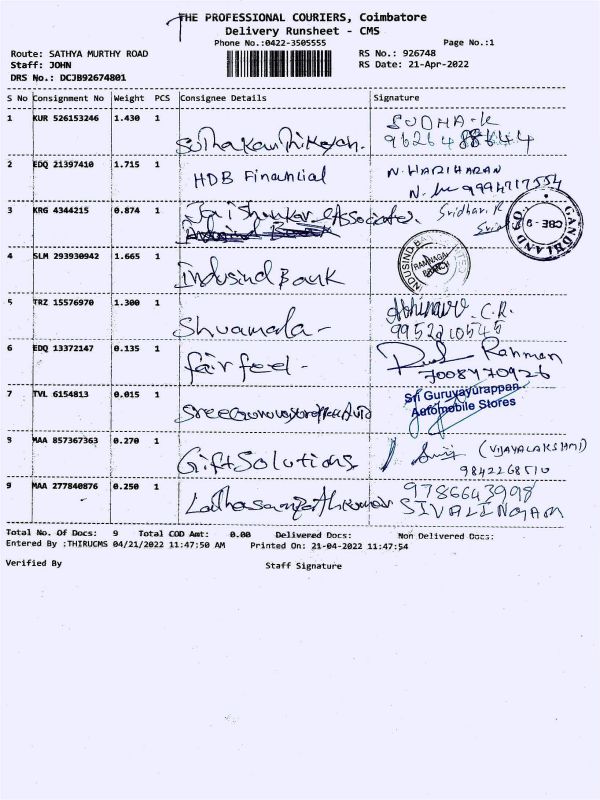 THE PROFESSIONAL COURIERS, Coimbatore
Delivery Runsheet - CMS
Phone No.:0422-3505555
Page No.:1
Route: SATHYA MURTHY ROAD
RS No.: 926748
Staff: JOHN
RS Date: 21-Apr-2022
DRS No.: DCJB92674801
S No Consignment No Weight PCS Consignee Details Signature
1 KUR 526153246 1.430 1 SUDHA-K
2 EDQ 21397410 1.715 1 HDB Financial N. HARIHARAN
N. 9994717554
3 KRG 4344215 0.874 1 Jai Shankar Associate. Sridhar.R
GANDHI CBE - 9
4 SLM 293930942 1.665 1 Indusind Bank
INDUSIND BA RAMNAGAR BRANCH
5 TRZ 15576970 1.300 1 Shyamala - Abhinav. C.R.
9952210545
6 EDQ 13372147 0.135 1 fair feel - Rahman
7008770926
7 TVL 6154813 0.015 1 Sri Guruvayurappan
Automobile Stores
MAA 857367363 0.270 1 Gift Solutions (VIJAYALAKSHMI)
9842268510
9 MAA 277840876 0.250 1 9786643998
SIVALINGAM
Total No. Of Docs: 9 Total COD Amt: 0.00 Delivered Docs: Non Delivered Docs:
Entered By :THIRUCMS 04/21/2022 11:47:50 AM Printed On: 21-04-2022 11:47:54
Verified By
Staff Signature